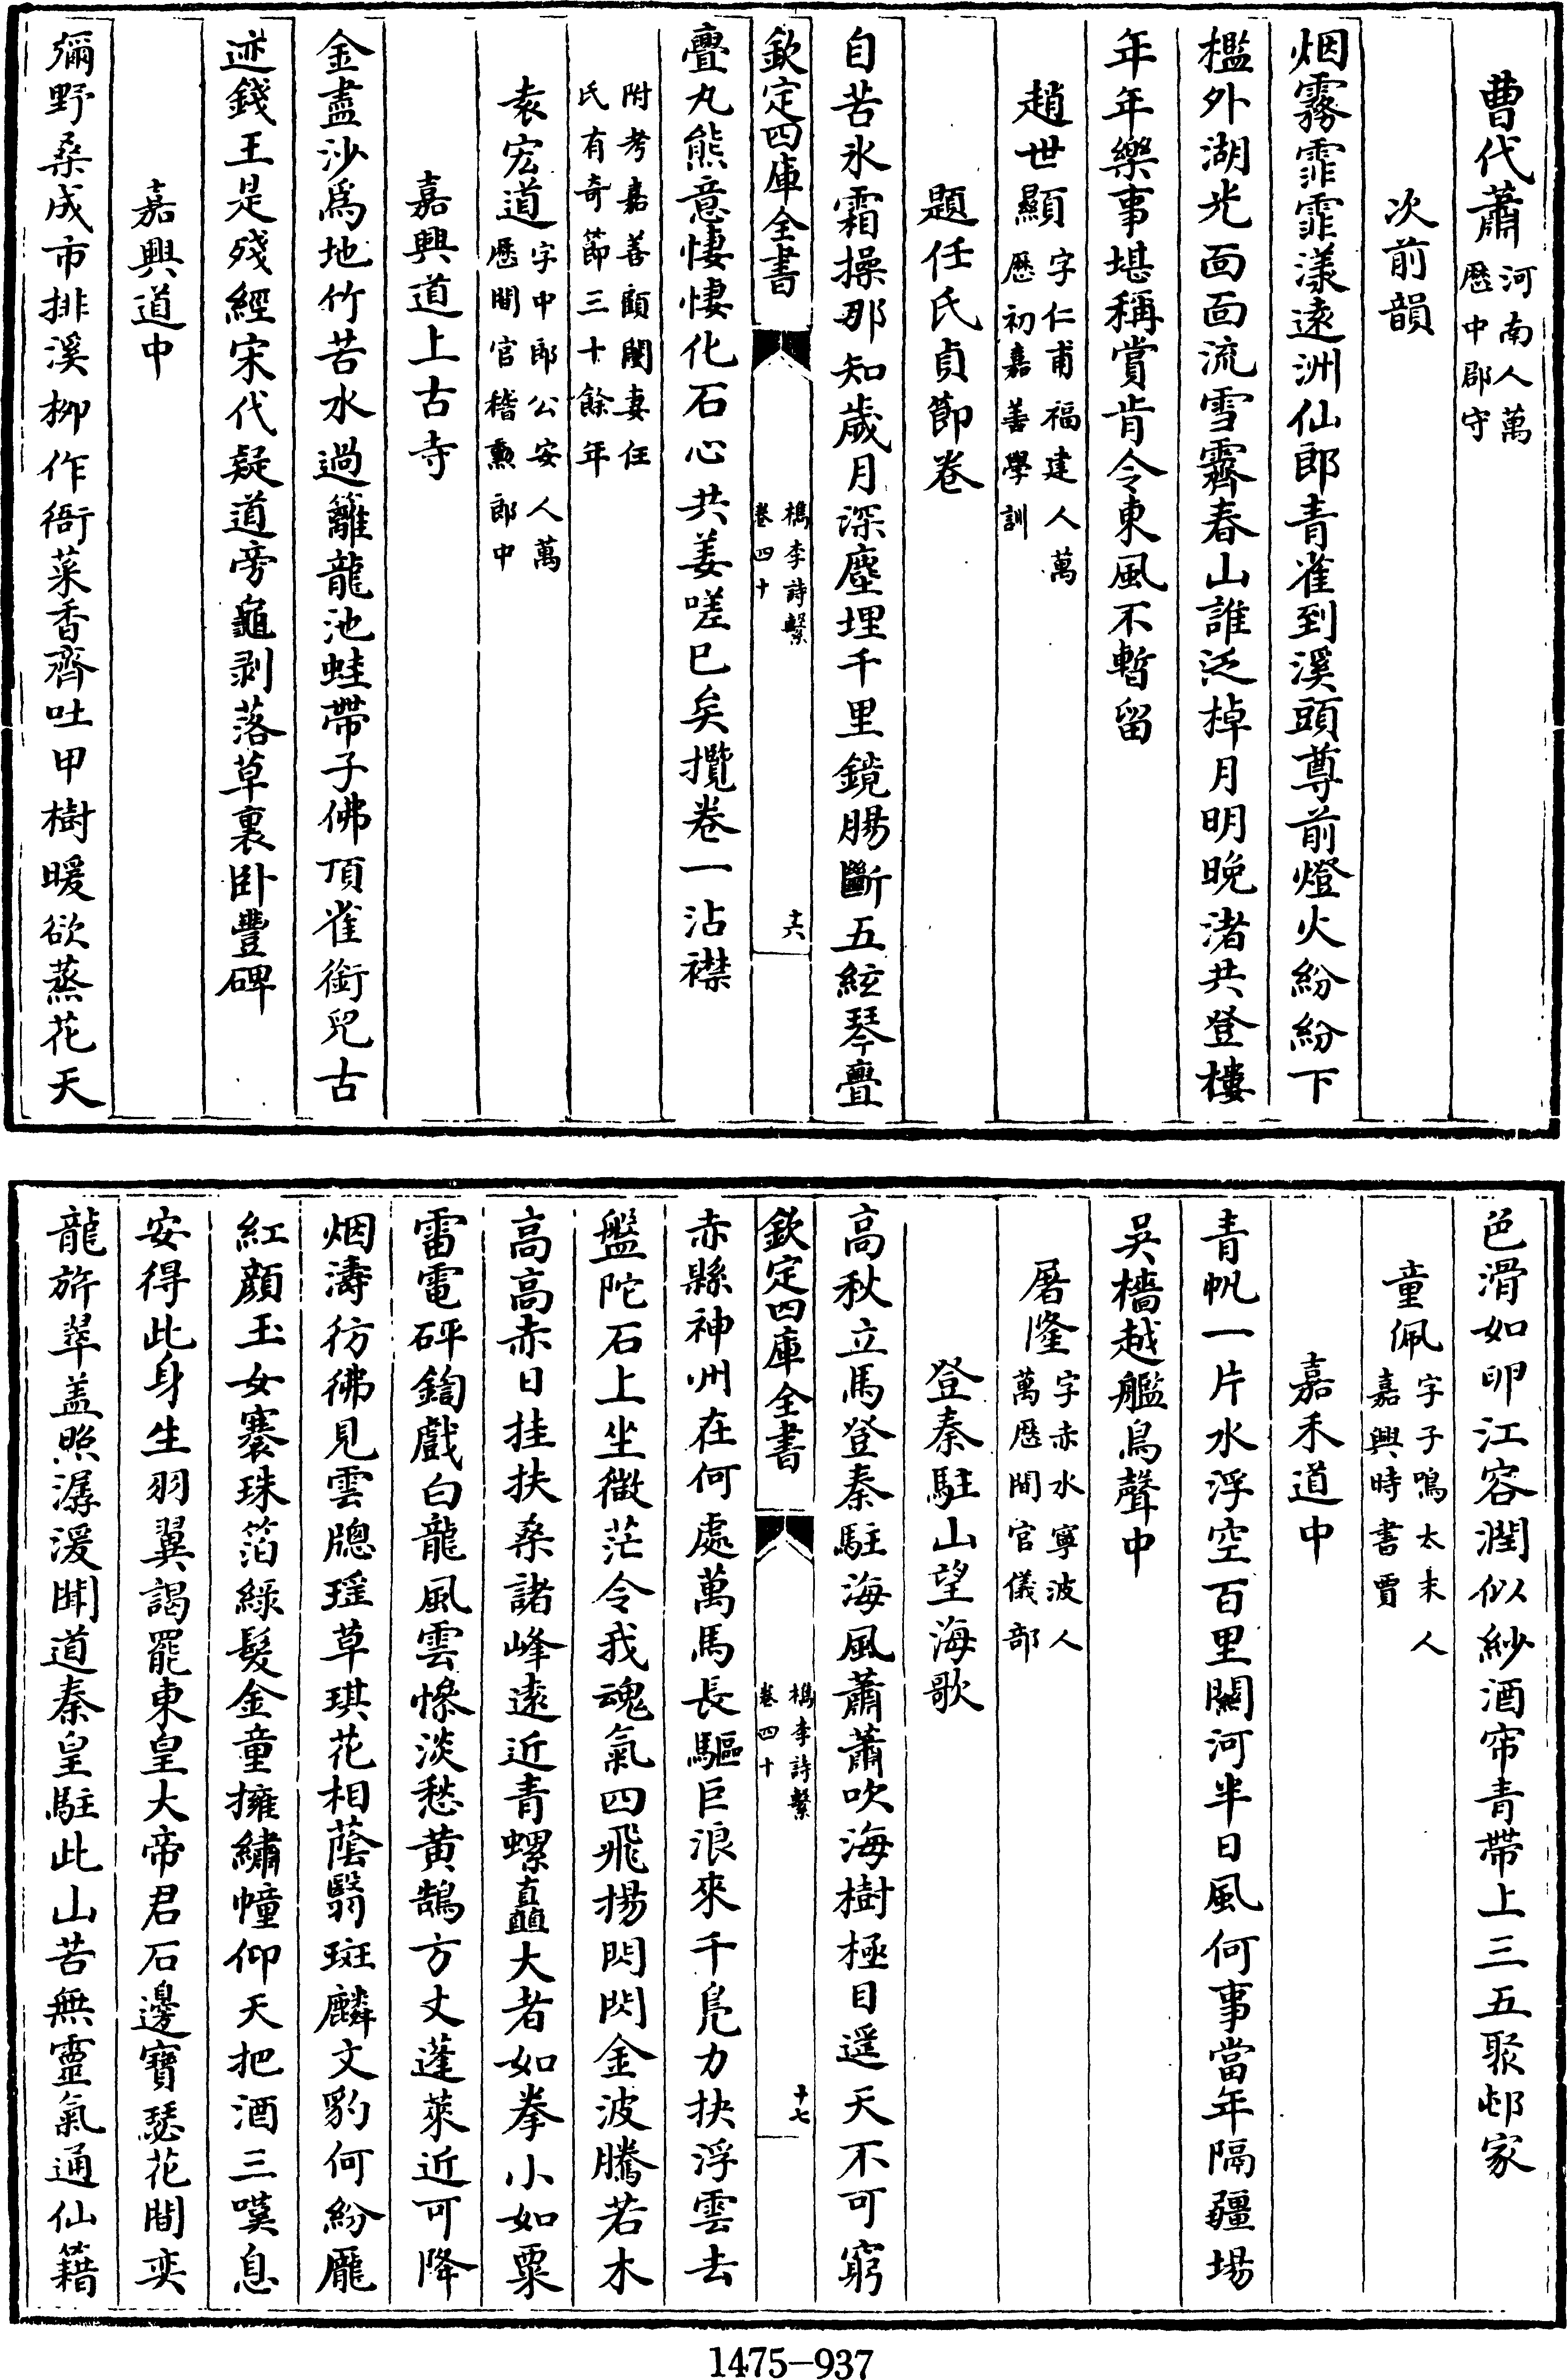 曹代蕭河南人萬歷中郡守
次前韻
烟霧霏霏漾遠洲仙郎青雀到溪頭尊前燈火紛紛下
檻外湖光面面流雪霽春山誰泛棹月明晚渚共登樓
年年樂事堪稱賞肯令東風不暫留
趙世顯字仁甫福建人萬歷初嘉善學訓
題任氏貞節卷
自苦氷霜操那知歲月深塵埋千里鏡腸斷五絃琴疊
欽定四庫全書
檇李詩繫
卷四十
十六
疊丸熊意悽悽化石心共姜嗟已矣攬卷一沾襟
附考嘉善顧閎妻任氏有奇節三十餘年
袁宏道字中郎公安人萬歷間官稽勲郎中
嘉興道上古寺
金盡沙爲地竹苦水過籬龍池蛙帶子佛頂雀銜兒古
迹錢王是殘經宋代疑道旁龜剥落草裏卧豐碑
嘉興道中
彌野桑成市排溪栁作衙菜香齊吐甲樹暖欲蒸花天
色滑如卵江容潤似紗酒帘青帶上三五聚邨家
童佩字子鳴太末人嘉興時書賈
嘉禾道中
青帆一片水浮空百里闗河半日風何事當年隔疆場
吳檣越艦鳥聲中
屠隆字赤水寧波人萬歷間官儀部
登秦駐山望海歌
高秋立馬登秦駐海風蕭蕭吹海樹極目遥天不可窮
欽定四庫全書
檇李詩繫
卷四十
十七
赤縣神州在何處萬馬長驅巨浪來千鳬力抉浮雲去
盤陀石上坐微茫令我魂氣四飛揚閃閃金波騰若木
高高赤日挂扶桑諸峰逺近青螺矗大者如拳小如粟
雷電砰鍧戲白龍風雲慘淡愁黄鵠方丈蓬萊近可降
烟濤彷彿見雲牕瑶草琪花相蔭翳斑麟文豹何紛厖
紅顔玉女褰珠箔綠髮金童擁繡幢仰天把酒三嘆息
安得此身生羽翼謁罷東皇大帝君石邊寶瑟花間奕
龍旂翠盖照潺湲聞道秦皇駐此山苦無靈氣通仙籍
1475—937